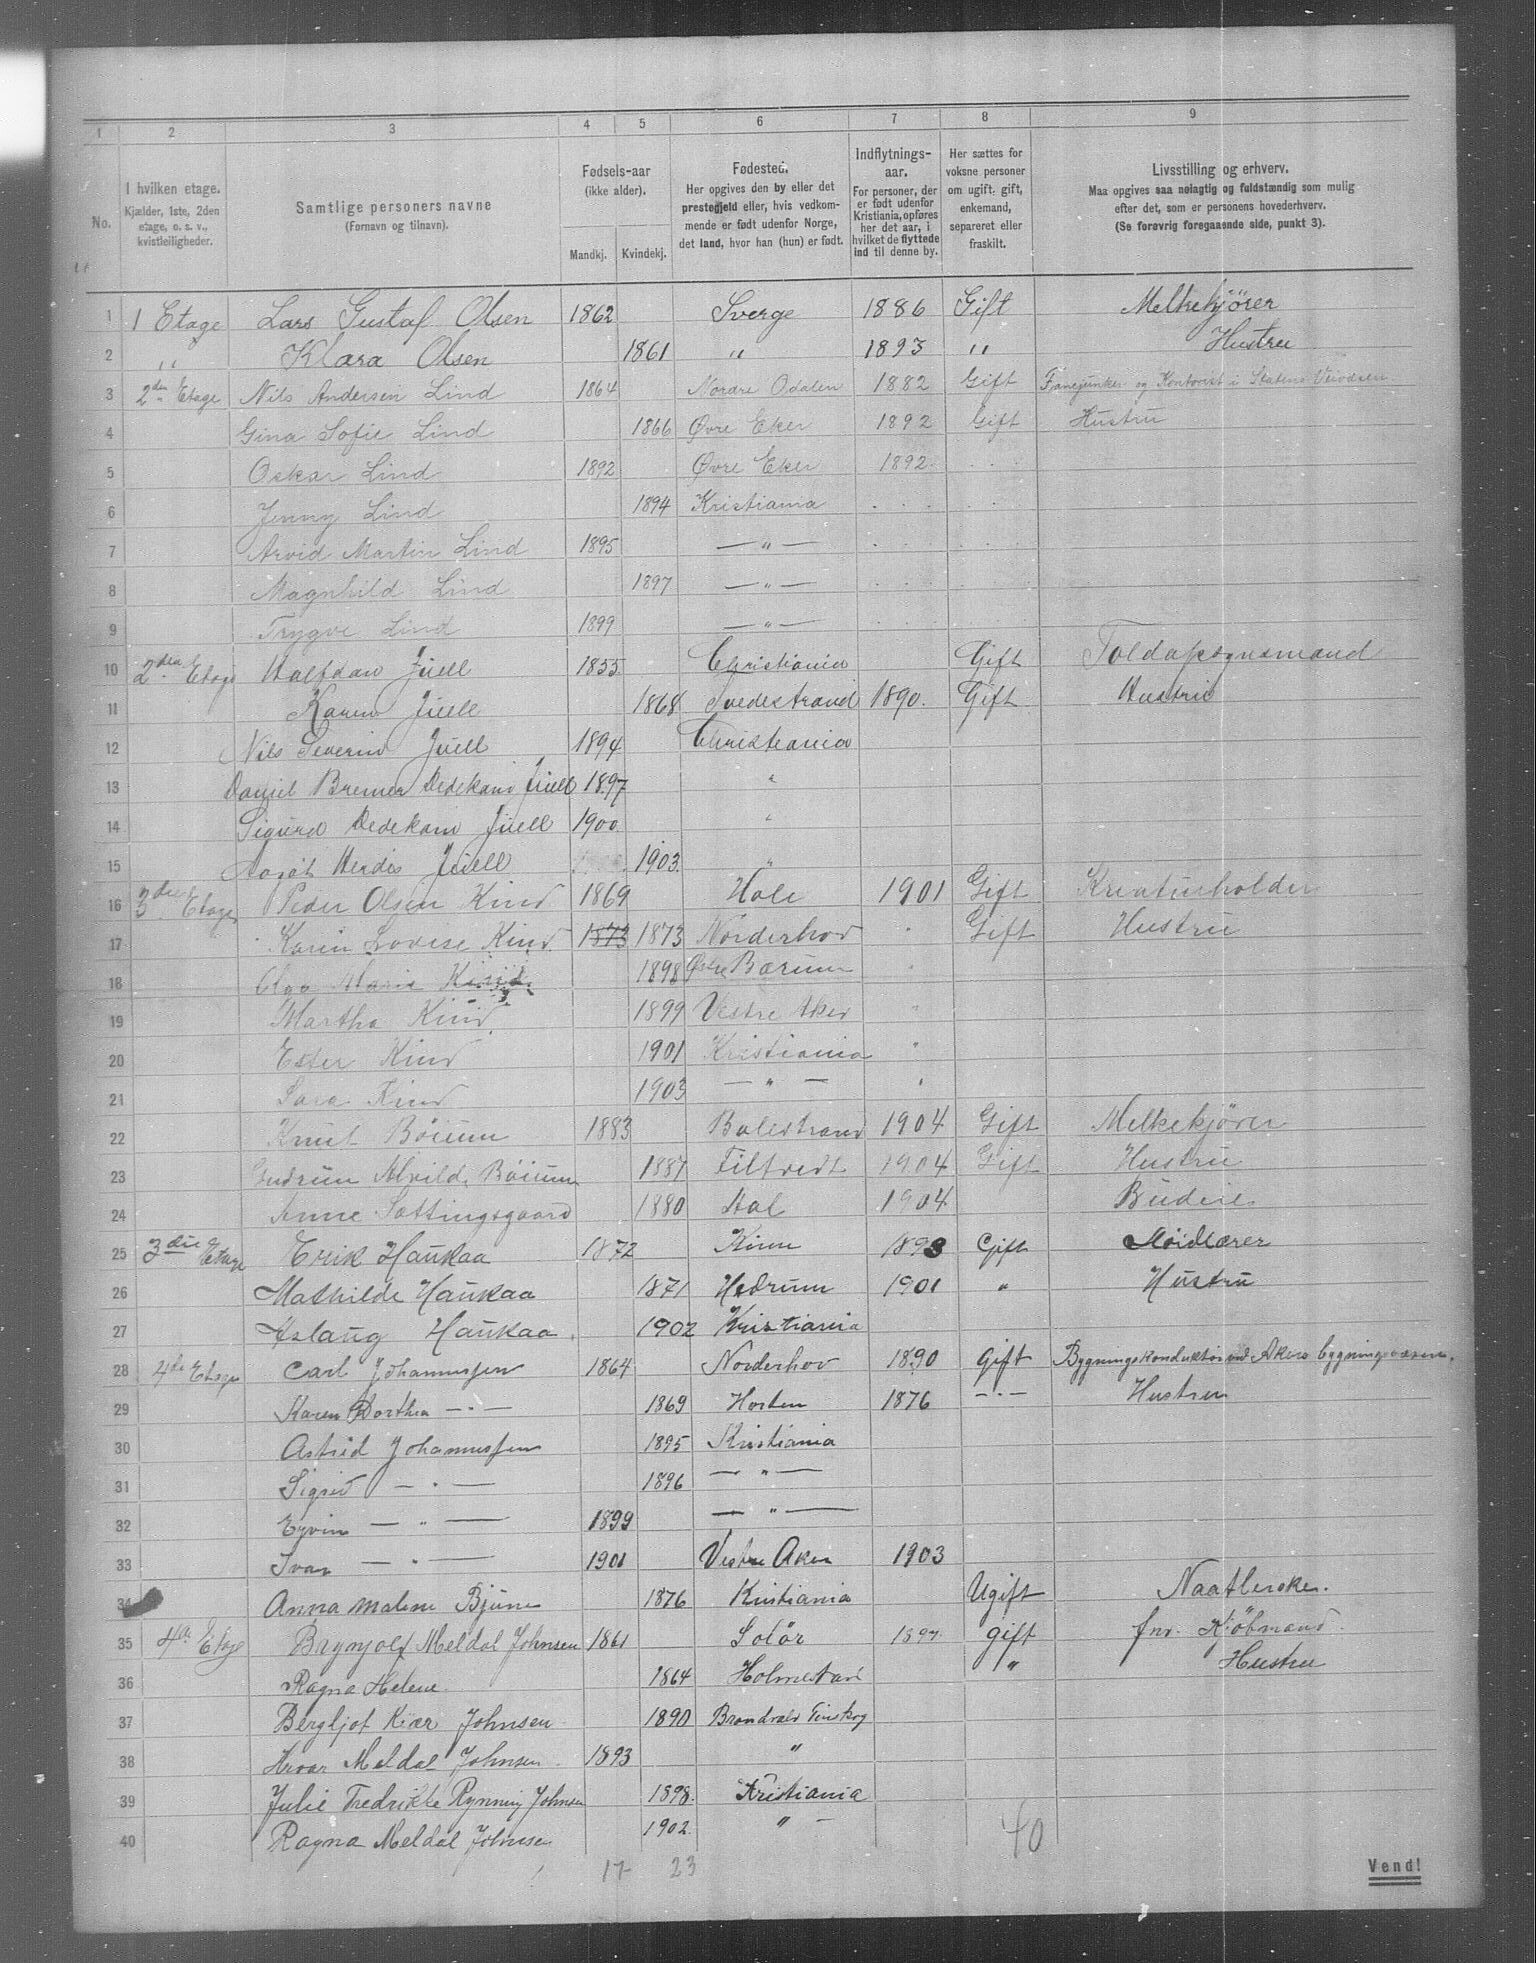 1 2 3 4 5 6 7 8 9
No.
I hvilken etage. Kjælder, 1ste, 2den etage, o. s. v., kvistleiligheder.
Samtlige personers navne (Fornavn og tilnavn).
Fødsels-aar (ikke alder). Mandkj. Kvindekj.
Fødested. Her opgives den by eller det prestegjeld eller, hvis vedkommende er født udenfor Norge, det land, hvor han (hun) er født.
Indflytnings-aar. For personer, der er født udenfor Kristiania, opføres her det aar, i hvilket de flyttede ind til denne by.
Her sættes for voksne personer om ugift, gift, enkemand, separeret eller fraskilt.
Livsstilling og erhverv. Maa opgives saa nøiagtig og fuldstændig som mulig efter det, som er personens hovederhverv. (Se forøvrig foregaaende side, punkt 3).
1 1 Etage Lars Gustaf Olsen 1862 Sverge 1886 Gift Melkekjörer
2 " Klara Olsen 1861 " 1893 " Hustru
3 2den Etage Nils Andersen Lind 1864 Nordre Odalen 1882 Gift Fanejunker og Kontorist i Statens Veivæsen
4 Gina Sofie Lind 1866 Øvre Eker 1892 Gift Hustru
5 Oskar Lind 1892 Øvre Eker 1892
6 Jenny Lind 1894 Kristiania
7 Arvid Martin Lind 1895 — " —
8 Magnhild Lind 1897 — " —
9 Trygve Lind 1899 — " —
10 2den Etage Halfdan Juell 1855 Christiania Gift Toldopsynsmand
11 Karen Juell 1868 Tvedestrand 1890. Gift Hustru
12 Nils Severin Juell 1894 Christiania
13 Daniel Bremer Dedekam Juell 1897 "
14 Sigurd Dedekam Juell 1900 "
15 Herdis Juell 1903. "
16 3die Etage Peder Olsen Kind 1869 Hole 1901 Gift Kreaturholder
17 Karin Lovise Kind 1873 1873 Norderhov " Gift Hustru
18 Olga Marie Kind 1898 Østre Bærum "
19 Martha Kind 1899 Vestre Aker "
20 Ester Kind 1901 Kristiania "
21 Sara Kind 1903 — " — "
22 Knut Böium 1883 Balestrand 1904 Gift Melkekjörer
23 Gudrun Alvilde Böium 1887 Filtvedt 1904 Gift Hustru
24 Anne Sættingsgaard 1880 Aal 1904 Budeie
25 3die Etage Erik Haukaa 1872 Kinn 1893 Gift Sløidlærer
26 Mathilde Haukaa 1871 Hedrum 1901 " Hustru
27 Aslaug Haukaa 1902 Kristiania
28 4de Etage Carl Johannessen 1864 Norderhov 1890 Gift Bygningskonduktør ved Akers bygningsvæsen.
29 Karen Dorthea — " — 1869 Horten 1876 — " — Hustru
30 Astrid Johannessen 1895 Kristiania
31 Sigrid — " — 1896 — " —
32 Eyvin — " — 1899 — " —
33 Ivar — " — 1901 Vestre Aker 1903
34 Anna Malene Bjune 1876 Kristiania Ugift Naatlerske.
35 4de Etage Brynjolf Meldal Johnsen 1861 Solör 1897 gift fnv. Kjöbmand
36 Ragna Helene 1864 Holmestrand " Hustru
37 Bergljot Kiær Johnsen 1890 Brandvald Finskog
38 Hroar Meldal Johnsen 1893 "
39 Julie Fredrikke Rynning Johnsen 1898. Kristiania
40 Ragna Meldal Johnsen 1902. " —
17 23 40
Vend!